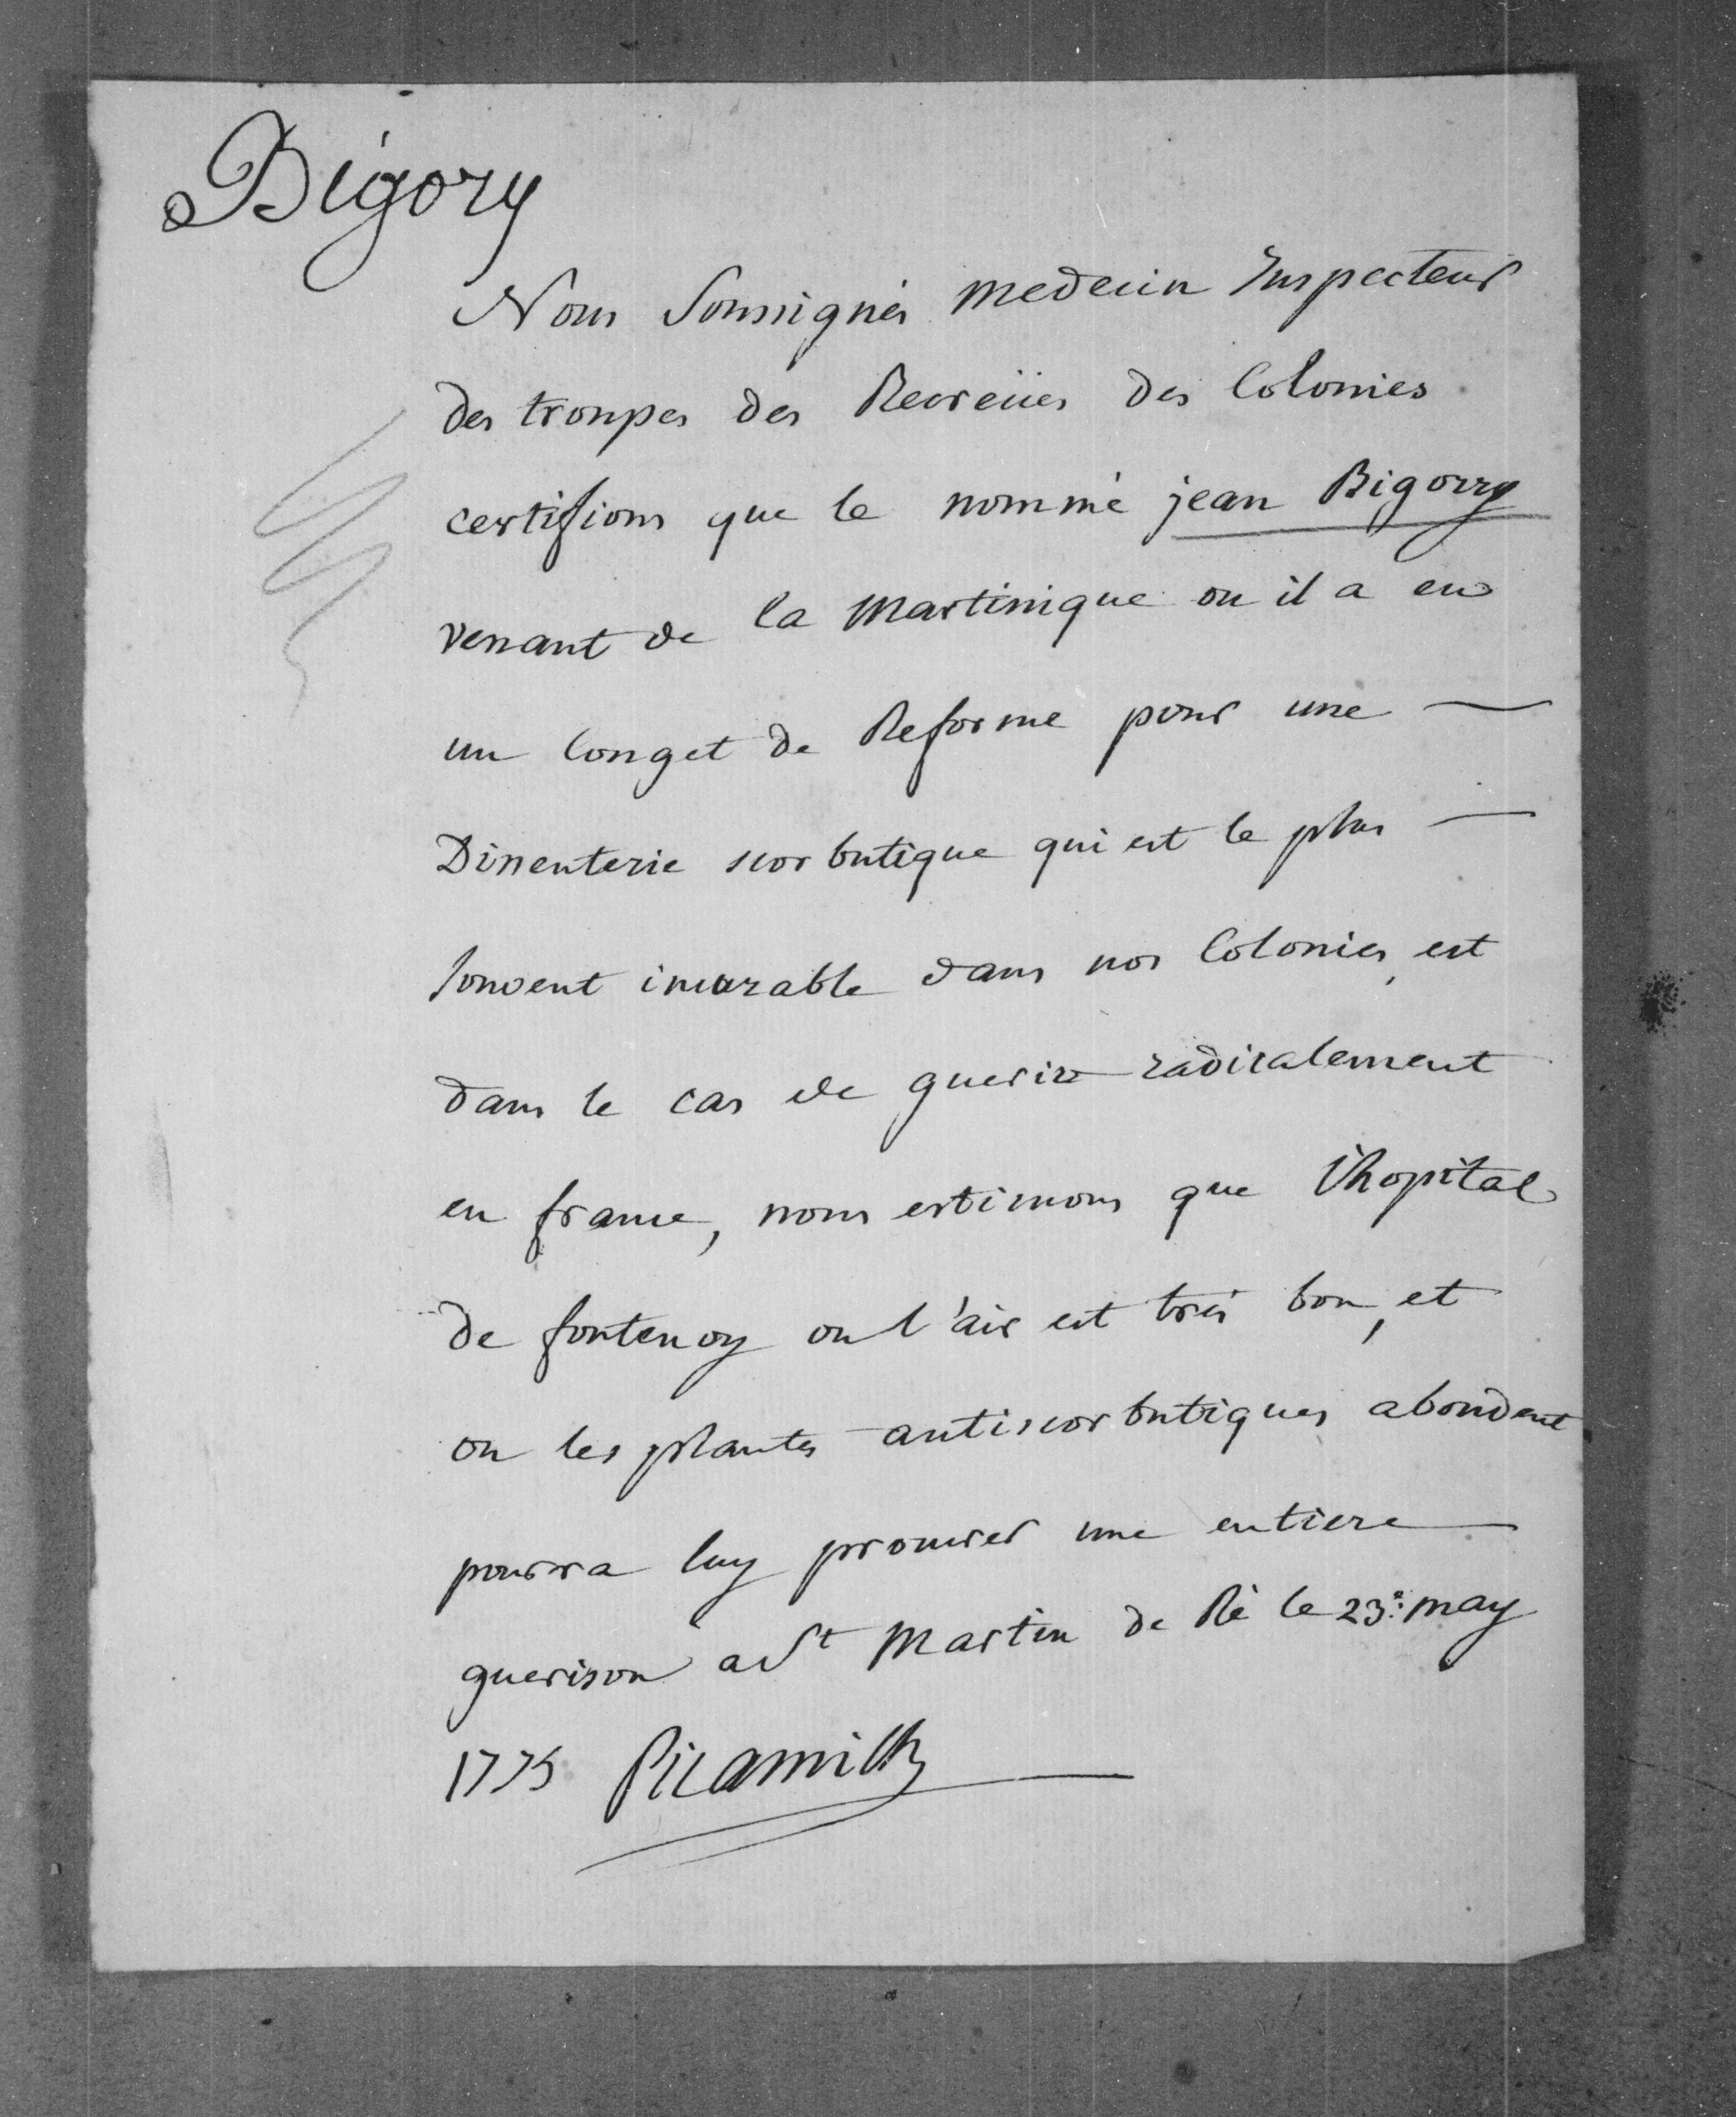 Bigory
Nous Soussignés medecin Inspecteur
des troupes des Recreües des Colonies
certifions que le nommé jean Bigorry
venant de la Martinique ou il a eu
un Conget de Reforme pour une
Dissenterie scorbutique qui est le plus
souvent incurable dans nos Colonies, est
dans le cas de guerir radicalement
en france, nous estimons que l'hopital
de fontenoy ou l'air est trés bon, et
ou les plantes antiscorbutiques abondent
pourra luy procurer une entiere
guerison a St Martin de Ré le 23e may
1775